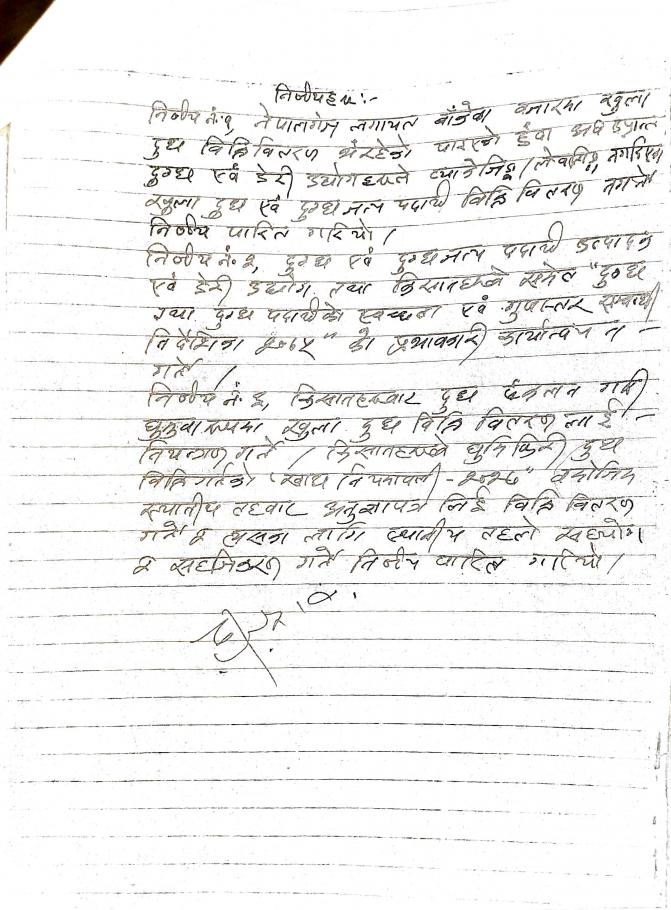 निर्णयहरु :-
निर्णय नं. १, नेपालगंज लगायत बाँकेका बजारमा खुला
दुध बिक्रि वितरण भैरहेको पाइएको हुँदा अब उप्रान्त
दुग्ध एवं डेरी उद्योगहरुले प्याकेजिङ्ग / लेबलिङ्ग नगरिएका
खुला दुध एवं दुग्धजन्य पदार्थ बिक्रि वितरण नगर्ने
निर्णय पारित गरियो ।
निर्णय नं. २, दुग्ध एवं दुग्धजन्य पदार्थ उत्पादन
एवं डेरी उद्योग तथा किसानहरुले समेत "दुग्ध
तथा दुग्ध पदार्थको स्वच्छता एवं गुणस्तर सम्बन्धी
निर्देशिका २०७५" को प्रभावकारी कार्यान्वयन
गर्ने ।
निर्णय नं. ३, किसानहरुबाट दुध संकलन गरी
घुमुवा रुपमा खुला दुध बिक्रि वितरण लाई
नियन्त्रण गर्ने / किसानहरुले घुमिफिरी दुध
बिक्रि गर्नको "खाद्य नियमावली - २०२७" बमोजिम
स्थानीय तहबाट अनुज्ञापत्र लिई बिक्रि वितरण
गर्ने र यसका लागि स्थानीय तहले सहयोग
र सहजिकरण गर्ने निर्णय पारित गरियो ।